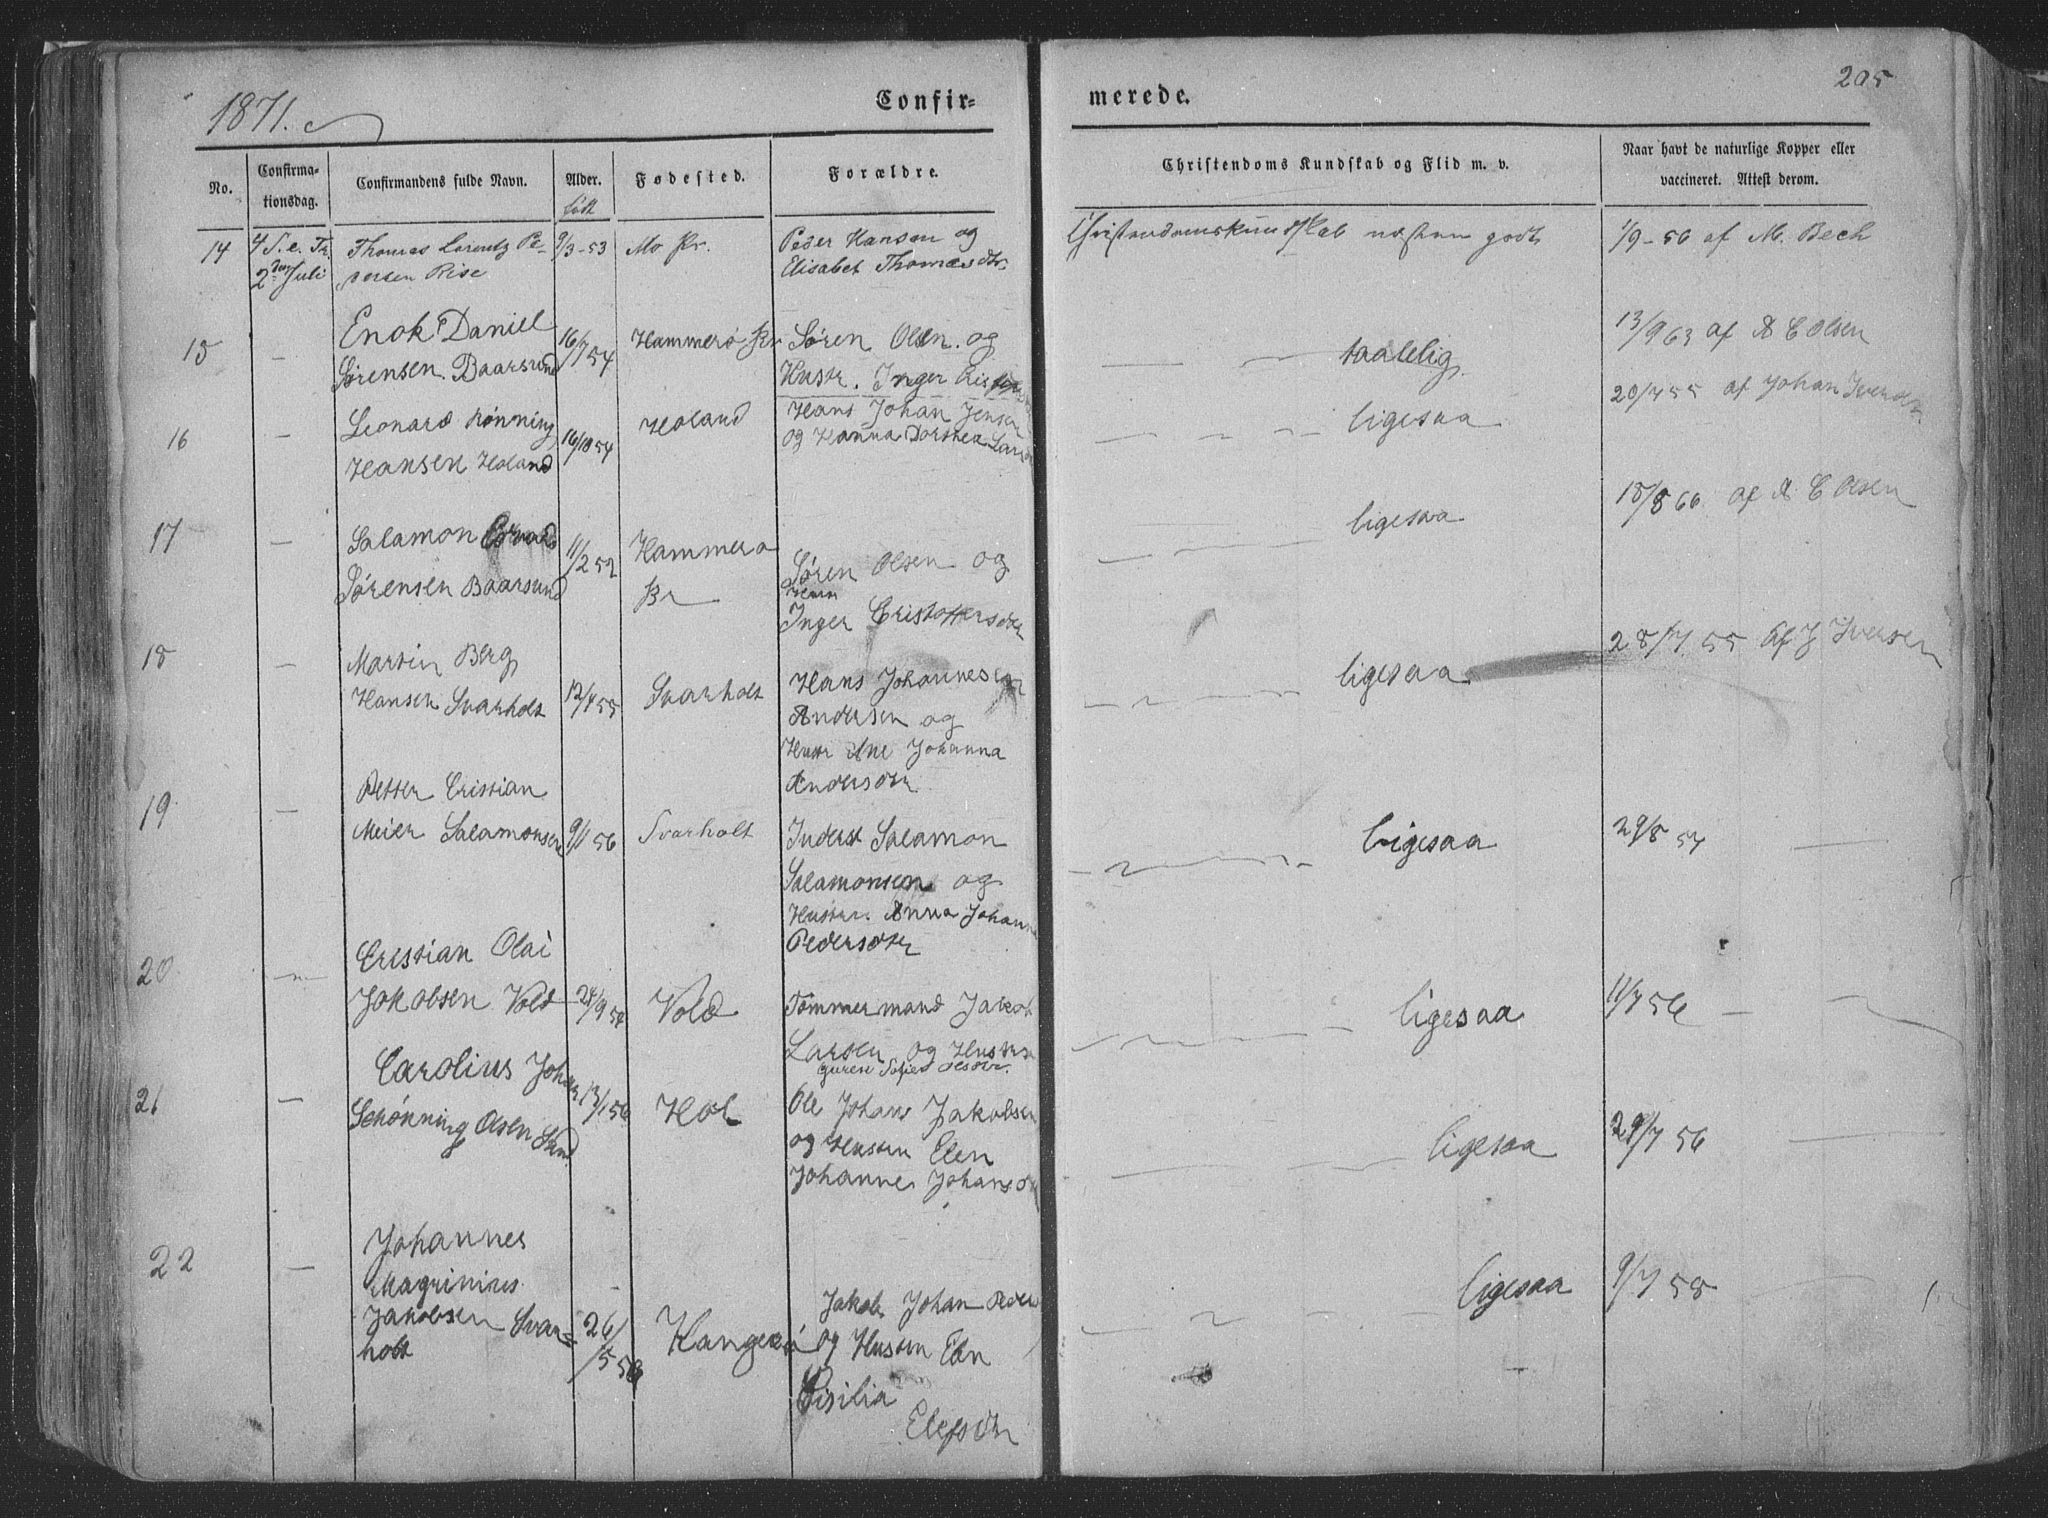 1871.
Confir=
merede.
205
No.
Confirma-
tionsdag.
Confirmandens fulde Navn.
Alder.
født
Fødested.
Forældre.
Christendoms Kundskab og Flid m. v.
Naar havt de naturlige Kopper eller
vaccineret. Attest derom.
14 4 S. e. Tr. Thomas Lorentz Pe- 9/3-53 Mo Pr. Peder Hansen og Christendomskundskab næsten godt 1/9-56 af M. Bech
2den Juli dersen Rise Elisabet Thomasdtr.
Enok Daniel
15 — 16/7 54 Hammerø Pr Søren Olsen og taalelig. 13/9 63 af A C Olsen
Sørensen Baarsund Hustr. Inger
16 — Leonard Rønning 16/10 54 Holand Hans Johan Jensen ligesaa 20/7 55 af Johan
Hansen Holand og Hanna Dorthea
17 — Salamon 11/2 52 Hammerø ligesaa 18/8 66 af A C Olsen
Sørensen Baarsund Pr Søren Olsen og
Inger Cristoffersdtr
18 — Martin Berg ligesaa 28/7 55 af J Iversen
Hansen Svarholt 12/4 55 Svarholt Hans Johannes
Andersen og
Hustr Ane Johanna
Andersdtr
Petter Cristian
19 — Meier Salamonsen 9/1 56 Svarholt Inderst Salamon ligesaa 29/8 57 —
Salamonsen og
Hustru Anna Johanna
Pedersdtr
20 — Cristian Olai
Jakobsen Vold 28/9 54 Vold Tømmermand Jakob ligesaa 11/7 56 —
Larsen og Hustru
Olsdtr.
Carolius Johan
21 — 13/1 56 Hol Ole Johan Jakobsen ligesaa 29/7 56 —
Schønning Olsen Sund og Husten Elen
Johanne Johansd
22 — Johannes
Magrinius ligesaa 9/7 58
Jakobsen Svar= 26/5 56 Jakob Johan Peder
holt og Husten Elen
Cisilia
Elefsdtr